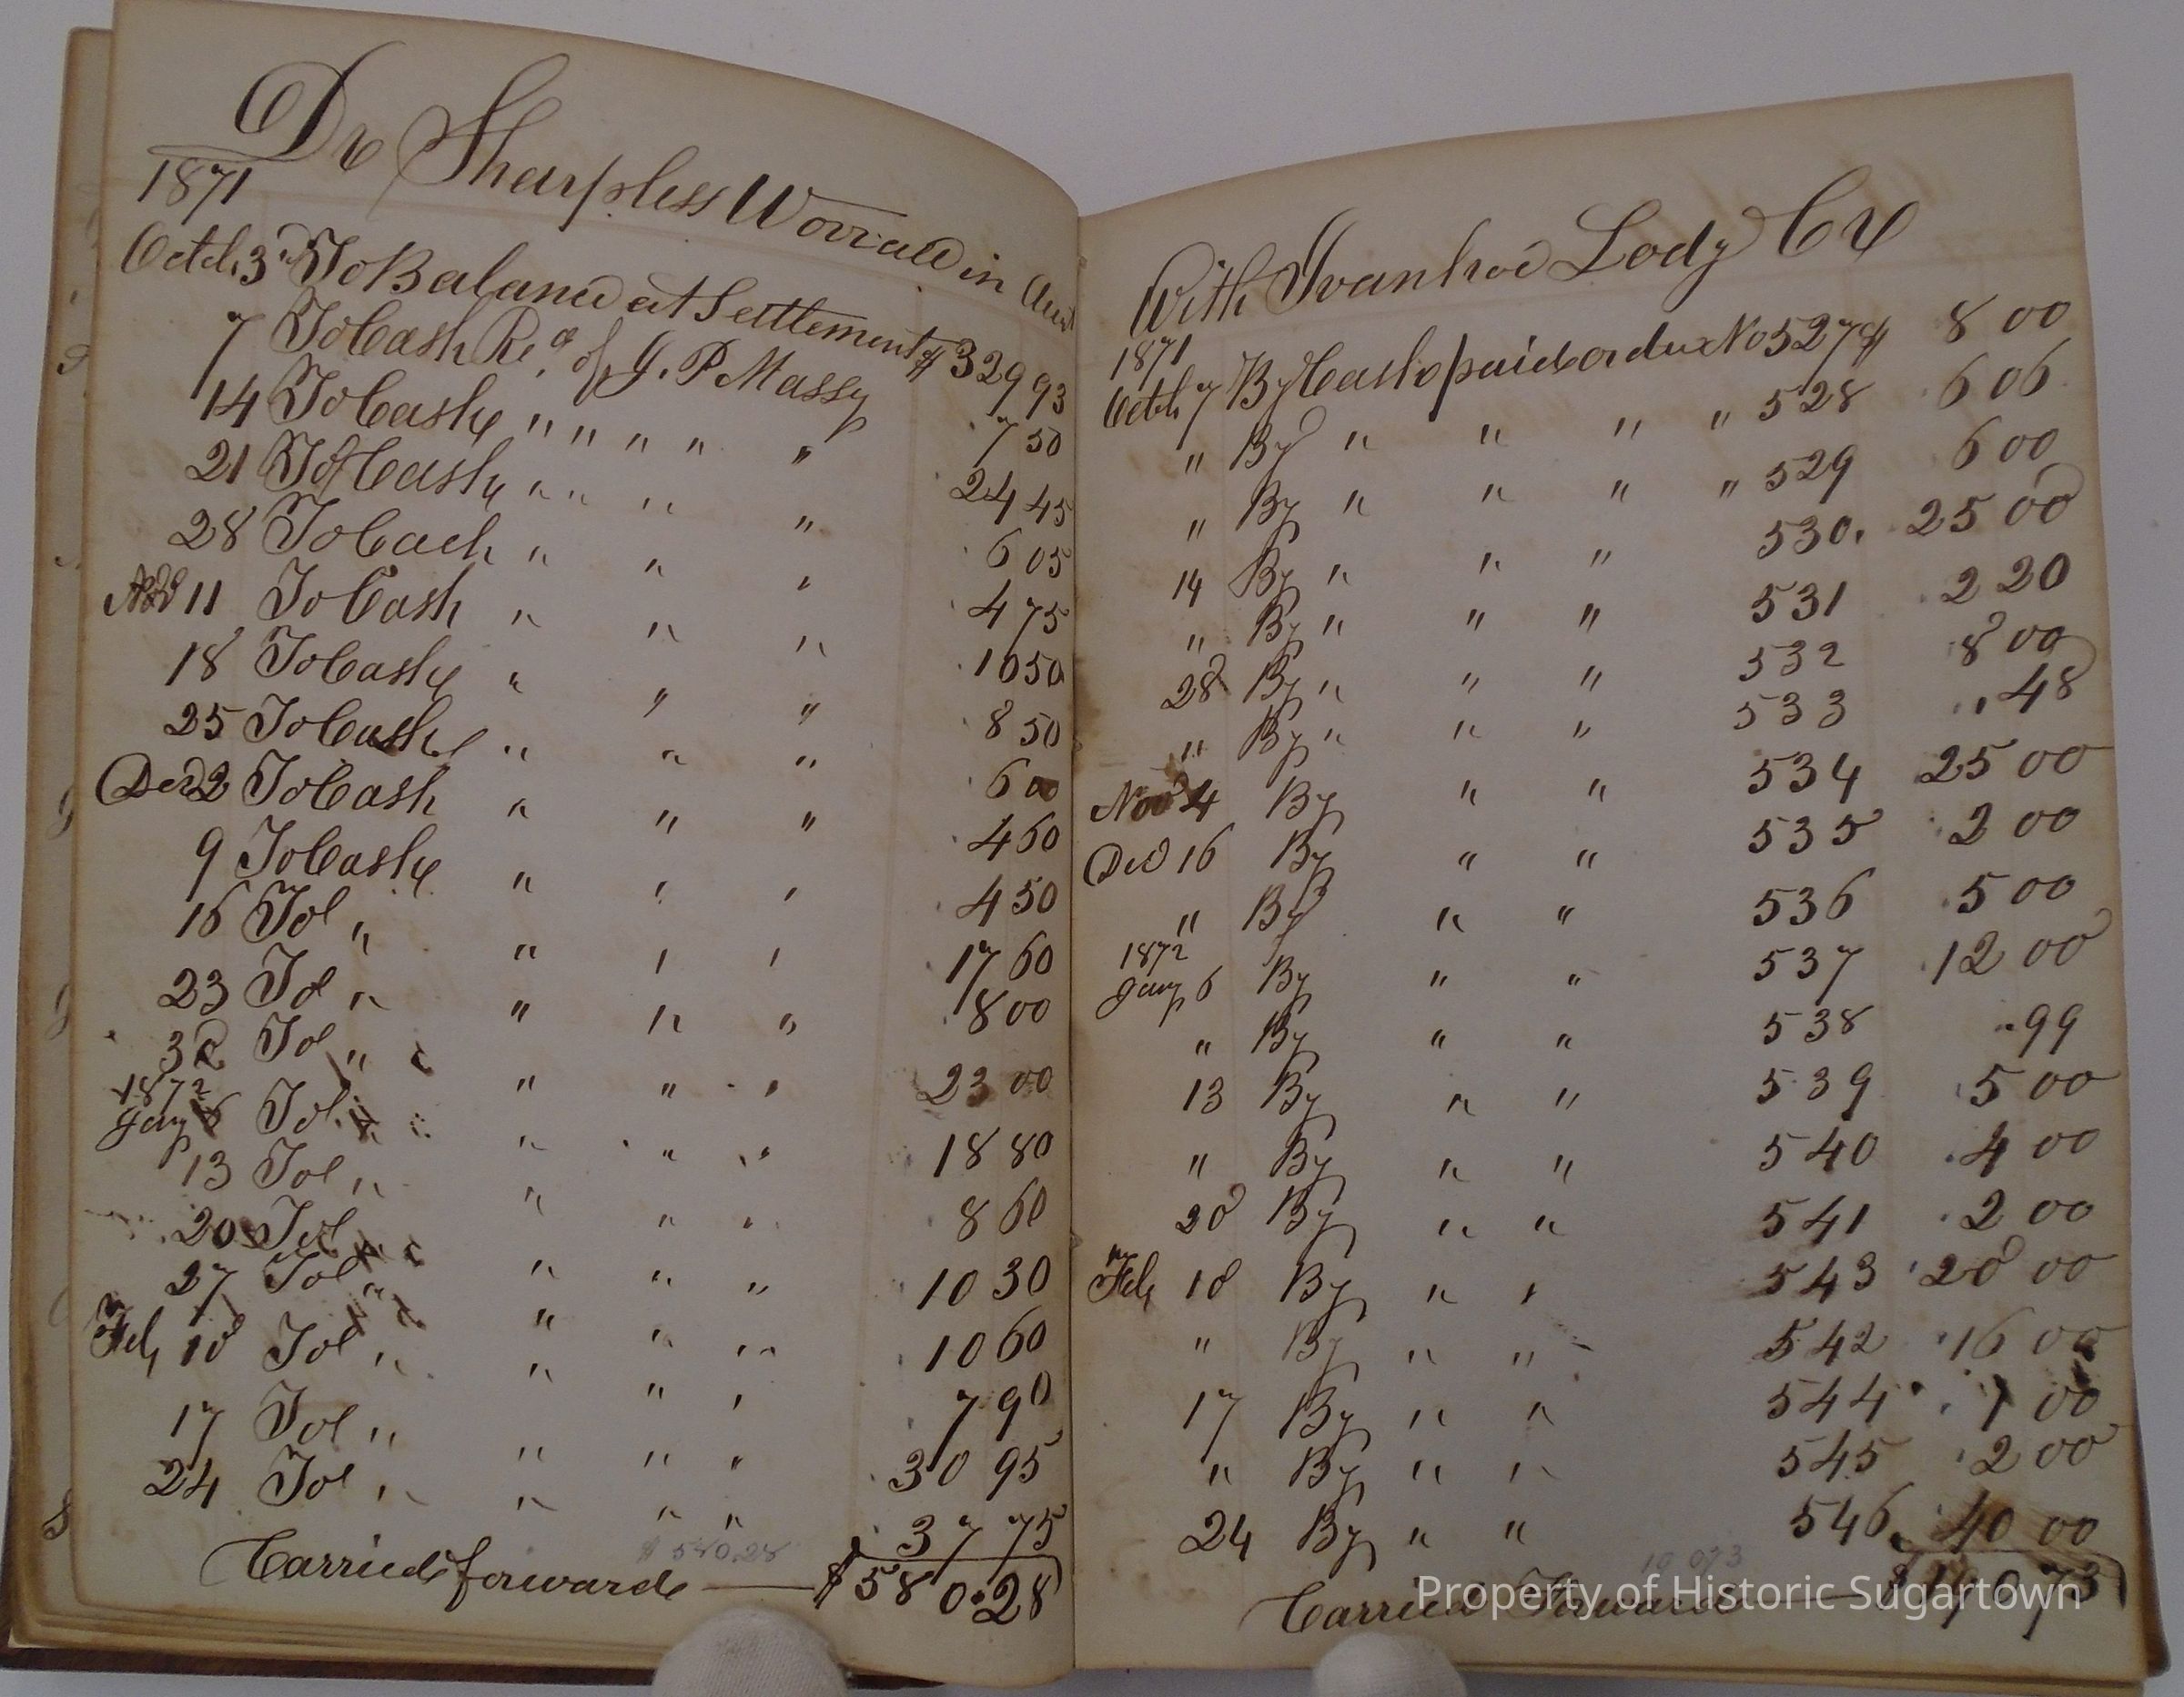 Dr Sharpless Worrall in Acct
1871
Octch 3d To Balance at Settlement $ 329 93
7 To Cash Re,d of J. P Massey 7 50
14 To Cash " " " " " 24 45
21 To Cash " " " " 6 05
28 To Cach " " " 4 75
11 To Cash " " " 10 50
18 To Cash " " " 8 50
25 To Cash " " " 6 00
Dec 2 To Cash " " " 4 60
9 To Cash " " " 4 50
16 To " " " " 17 60
23 To " " " " 8 00
30 To " " " " 23 00
1872
Jany 6 To " " " " 18 80
13 To " " " " 8 60
20 To " " " " 10 30
27 To " " " " 10 60
Feb 10 To " " " " 7 90
17 To " " " " 30 95
24 To " " " " 37 75
$ 580.28
Carried forward $ 580.28
With Ivanhoe Lodg Cr
1871
Octch 7 By Cash paid ordux No 527 $ 8 00
" By " " " " 528 6 06
" By " " " " 529 6 00
14 By " " " 530. 25 00
" By " " " 531 2 20
28 By " " " 532 8 00
" By " " " 533 " 48
Nov 4 By " " 534 25 00
Dec 16 By " " 535 2 00
" By " " 536 5 00
1872
Jany 6 By " " 537 12 00
" By " " 538 " 99
13 By " " 539 5 00
" By " " 540 4 00
20 By " " 541 2 00
Feb 10 By " " 543 20 00
" By " " 542 16 00
17 By " " 544 1 00
" By " " 545 2 00
24 By " " 546 40 00
Carried Forward
Property of Historic Sugartown